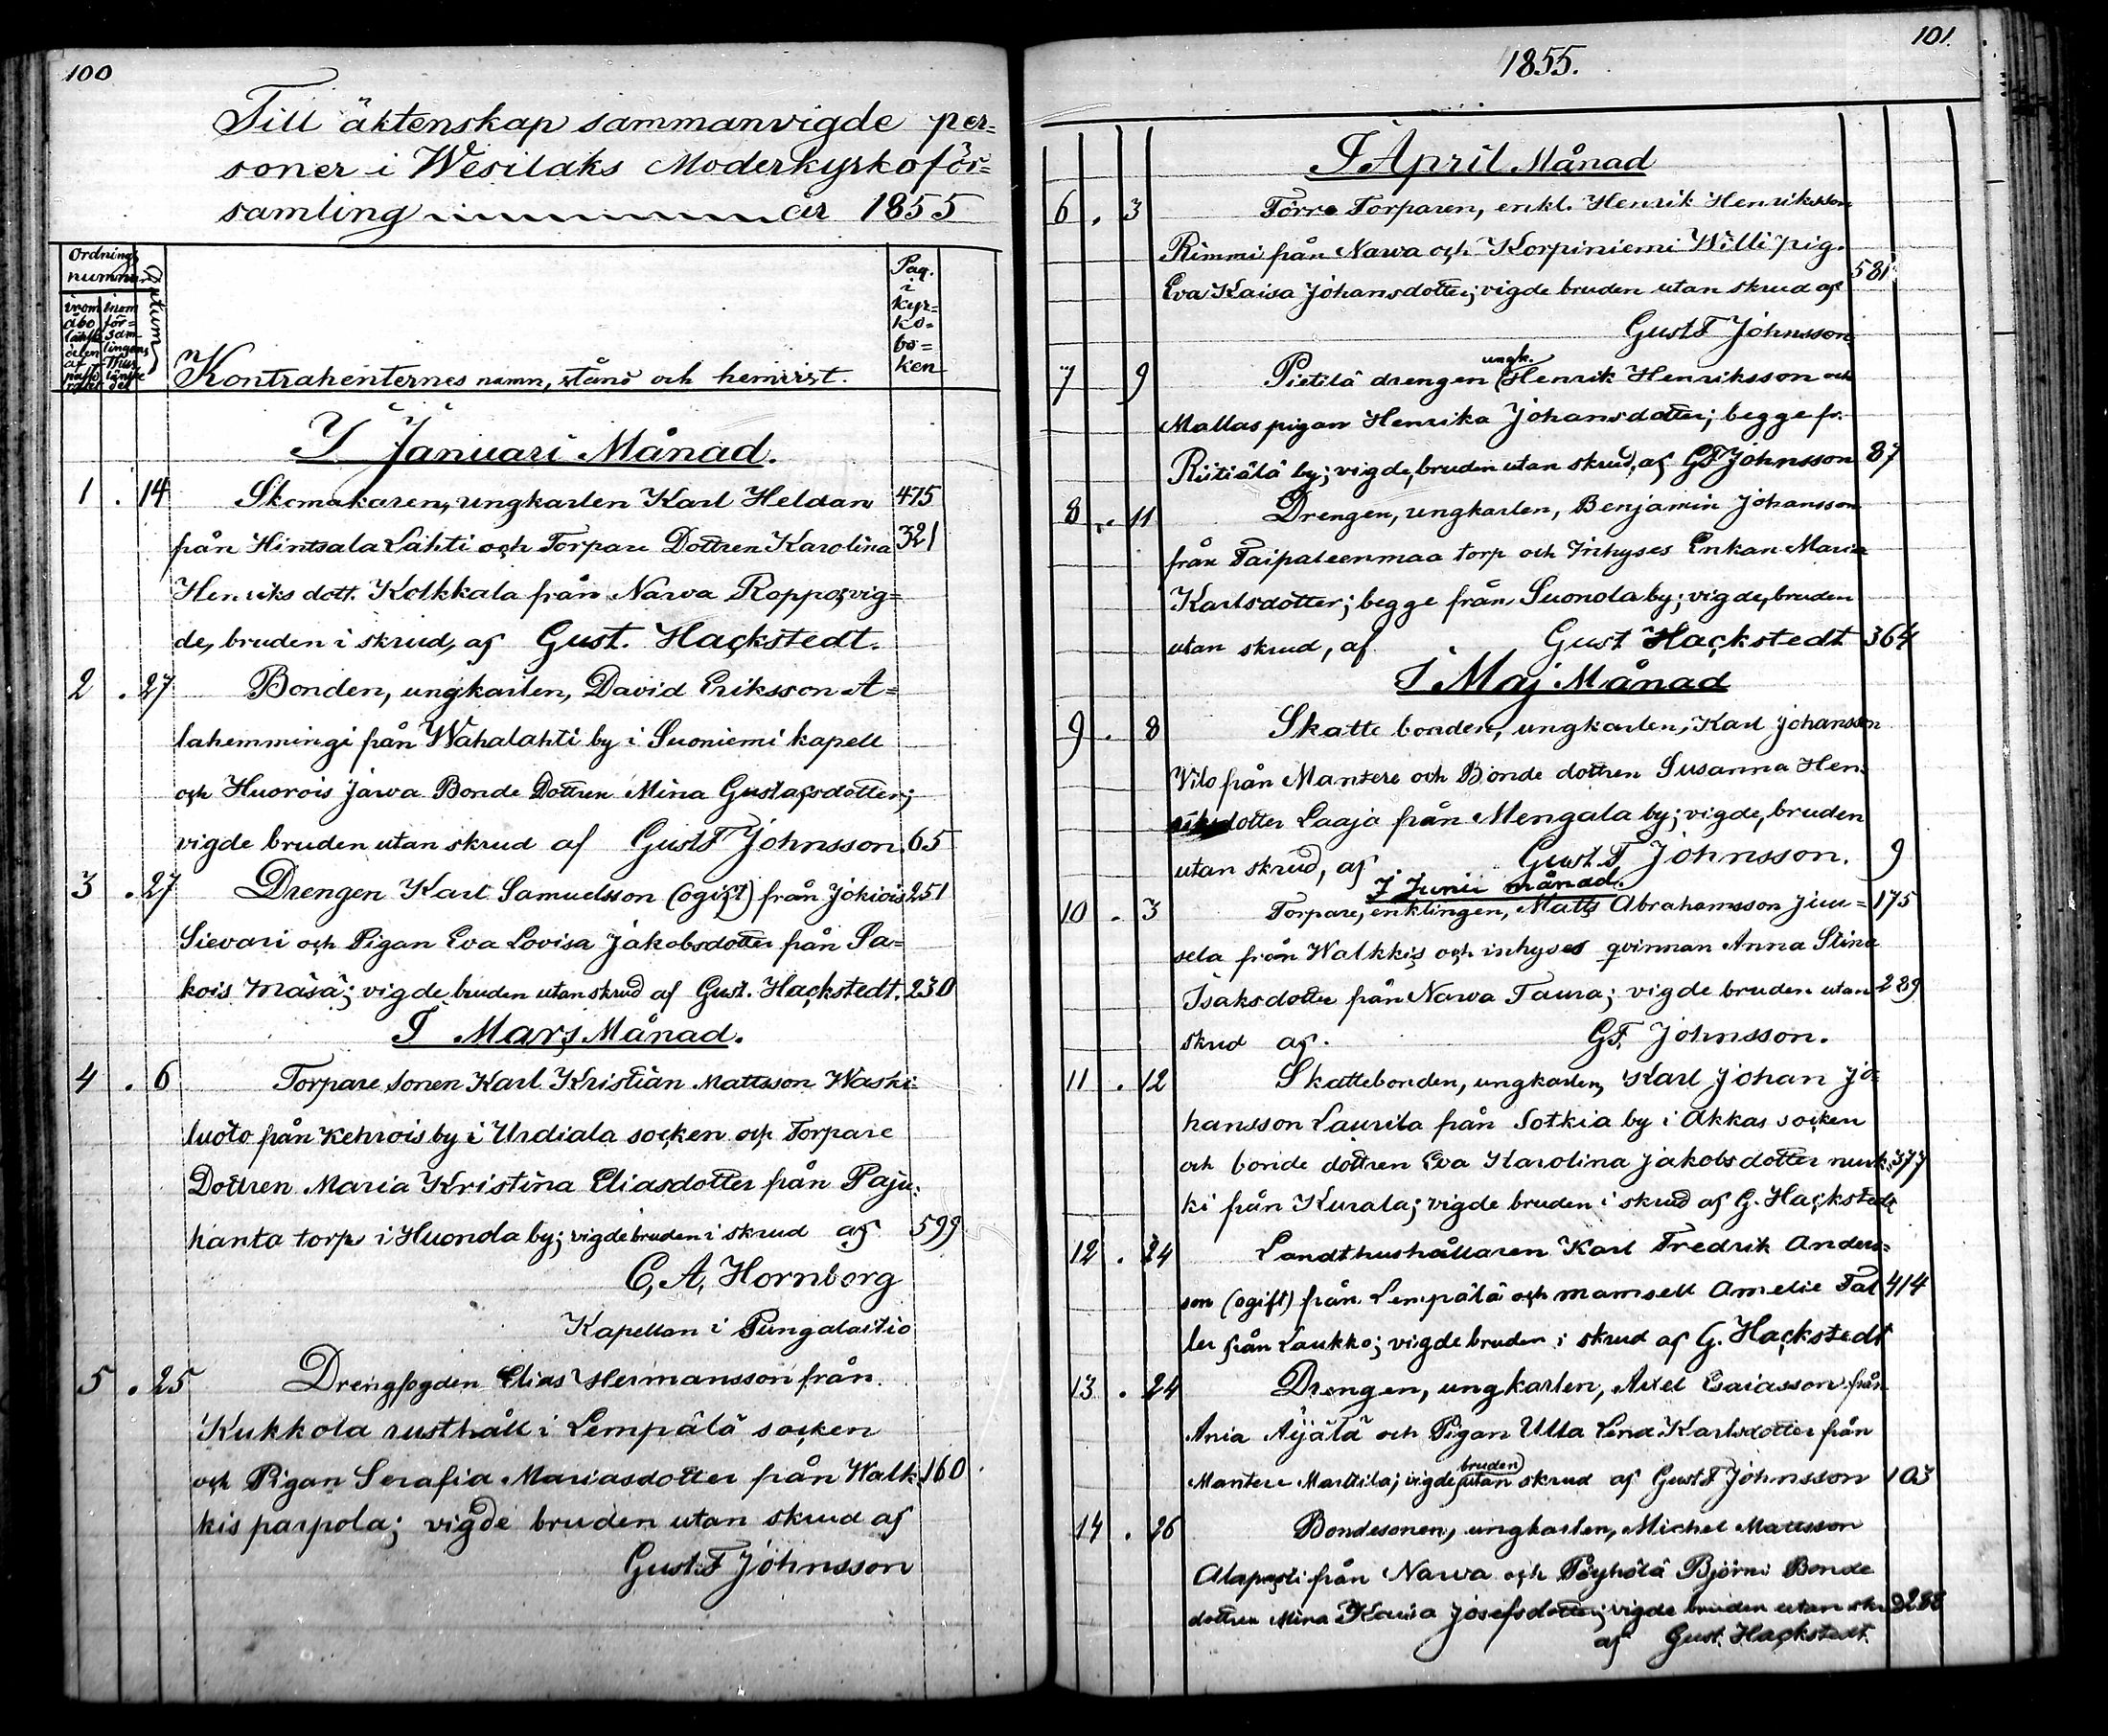 100
Till äktenskap sammanvigde per=
soner i Wesilaks Moderkyrkoför=
samling år 1855
Ordnings
nummer
inom
åbo
länsk
delen
af
inom
för=
sam=
lingens
Datum
Kontrahenternes namn, stånd och hemvist.
Pag.
i
kyr=
ko=
bo=
ken
I Januari Månad.
1 . 14 Skomakaren, ungkarlen Karl Heldan 475
från Hintsala Lahti och Torpare Dottren Karolina 321
Henriksdott. Kolkkala från Narva Roppo; vig=
de, bruden i skrud, af Gust. Hackstedt.
2 . 27 Bonden, ungkarlen, David Eriksson A=
lahemmingi från Wahalahti by i Suoniemi kapell
och Huorois Jarva Bonde Dottren Mina Gustafsdotter;
vigde bruden utan skrud af Gust F Johnsson. 65
3 . 27 Drengen Karl Samuelsson (ogift) från Jokiois 251
Sievari och Pigan Eva Lovisa Jakobsdotter från Sa=
kois Mäsä; vigde bruden utan skrud af Gust. Hackstedt. 230
I Mars Månad.
4 . 6 Torpare sonen Karl Kristian Mattsson Waski=
luoto från Kehrois by i Urdiala socken och Torpare
Dottren Maria Kristina Eliasdotter från Paju=
hanta torp i Huonola by; vigde bruden i skrud af 599
C. A. Hornborg
Kapellan i Pungalaitio
5 . 25 Drengfogden Elias Hermansson från
Kukkola rusthåll i Lempälä socken
och Pigan Serafia Mariasdotter från Walk= 160
kis parpola; vigde bruden utan skrud af
Gust. F Johnsson
101.
1855.
I April Månad
6 . 3 Förre Torparen, enkl. Henrik Henriksson
Rimmi från Narva och Korpiniemi Willi pig.
Eva Kaisa Johansdotter; vigde bruden utan skrud af 581
Gust F Johnsson
7 9 Pietilä drengen ungk. Henrik Henriksson och
Mallas pigan Henrika Johansdotter; begge fr.
Riitiälä by; vigde, bruden utan skrud, af GF Johnsson 87
8 . 11 Drengen, ungkarlen, Benjamin Johansson
från Taipaleenmaa torp och Inhyses Enkan Maria
Karlsdotter; begge från Suonola by; vigde, bruden
utan skrud, af Gust Hackstedt 364
I Maj Månad
9 . 8 Skatte bonden, ungkarlen, Karl Johansson
Vilo från Mantere och Bonde dottren Susanna Hen=
riksdotter Laaja från Mengala by; vigde, bruden
utan skrud, af Gust. F Johnsson. 9
I Junii månad.
10 . 3 Torpare, enklingen, Matts Abrahamsson Juu= 175
sela från Walkkis och inhyses qvinnan Anna Stina
Isaksdotter från Narva Taura; vigde bruden utan 289
skrud af. GF. Johnsson.
11 . 12 Skattebonden, ungkarlen, Karl Johan Jo=
hansson Laurila från Sotkia by i Akkas socken
och bonde dottren Eva Karolina Jakobsdotter nurk= 377
ki från Kurala; vigde bruden i skrud af G. Hackstedt
12 . 24 Landthushållaren Karl Fredrik Anders=
son (ogift) från Lempälä och mamsell Amelie Tal 414
ler från Laukko; vigde bruden i skrud af G. Hackstedt
13 . 24 Drengen, ungkarlen, Axel Esaiasson från
Ania Äijälä och Pigan Ulla Lena Karlsdotter från
Mantere Marttila; vigde bruden utan skrud af Gust F Johnsson 103
14 . 26 Bondesonen, ungkarlen, Michel Mattsson
Alaparti från Narva och Pöyhölä Björni Bonde
dottren Mina Kaisa Josefsdotter; vigde bruden utan skrud 288
af Gust. Hackstedt.